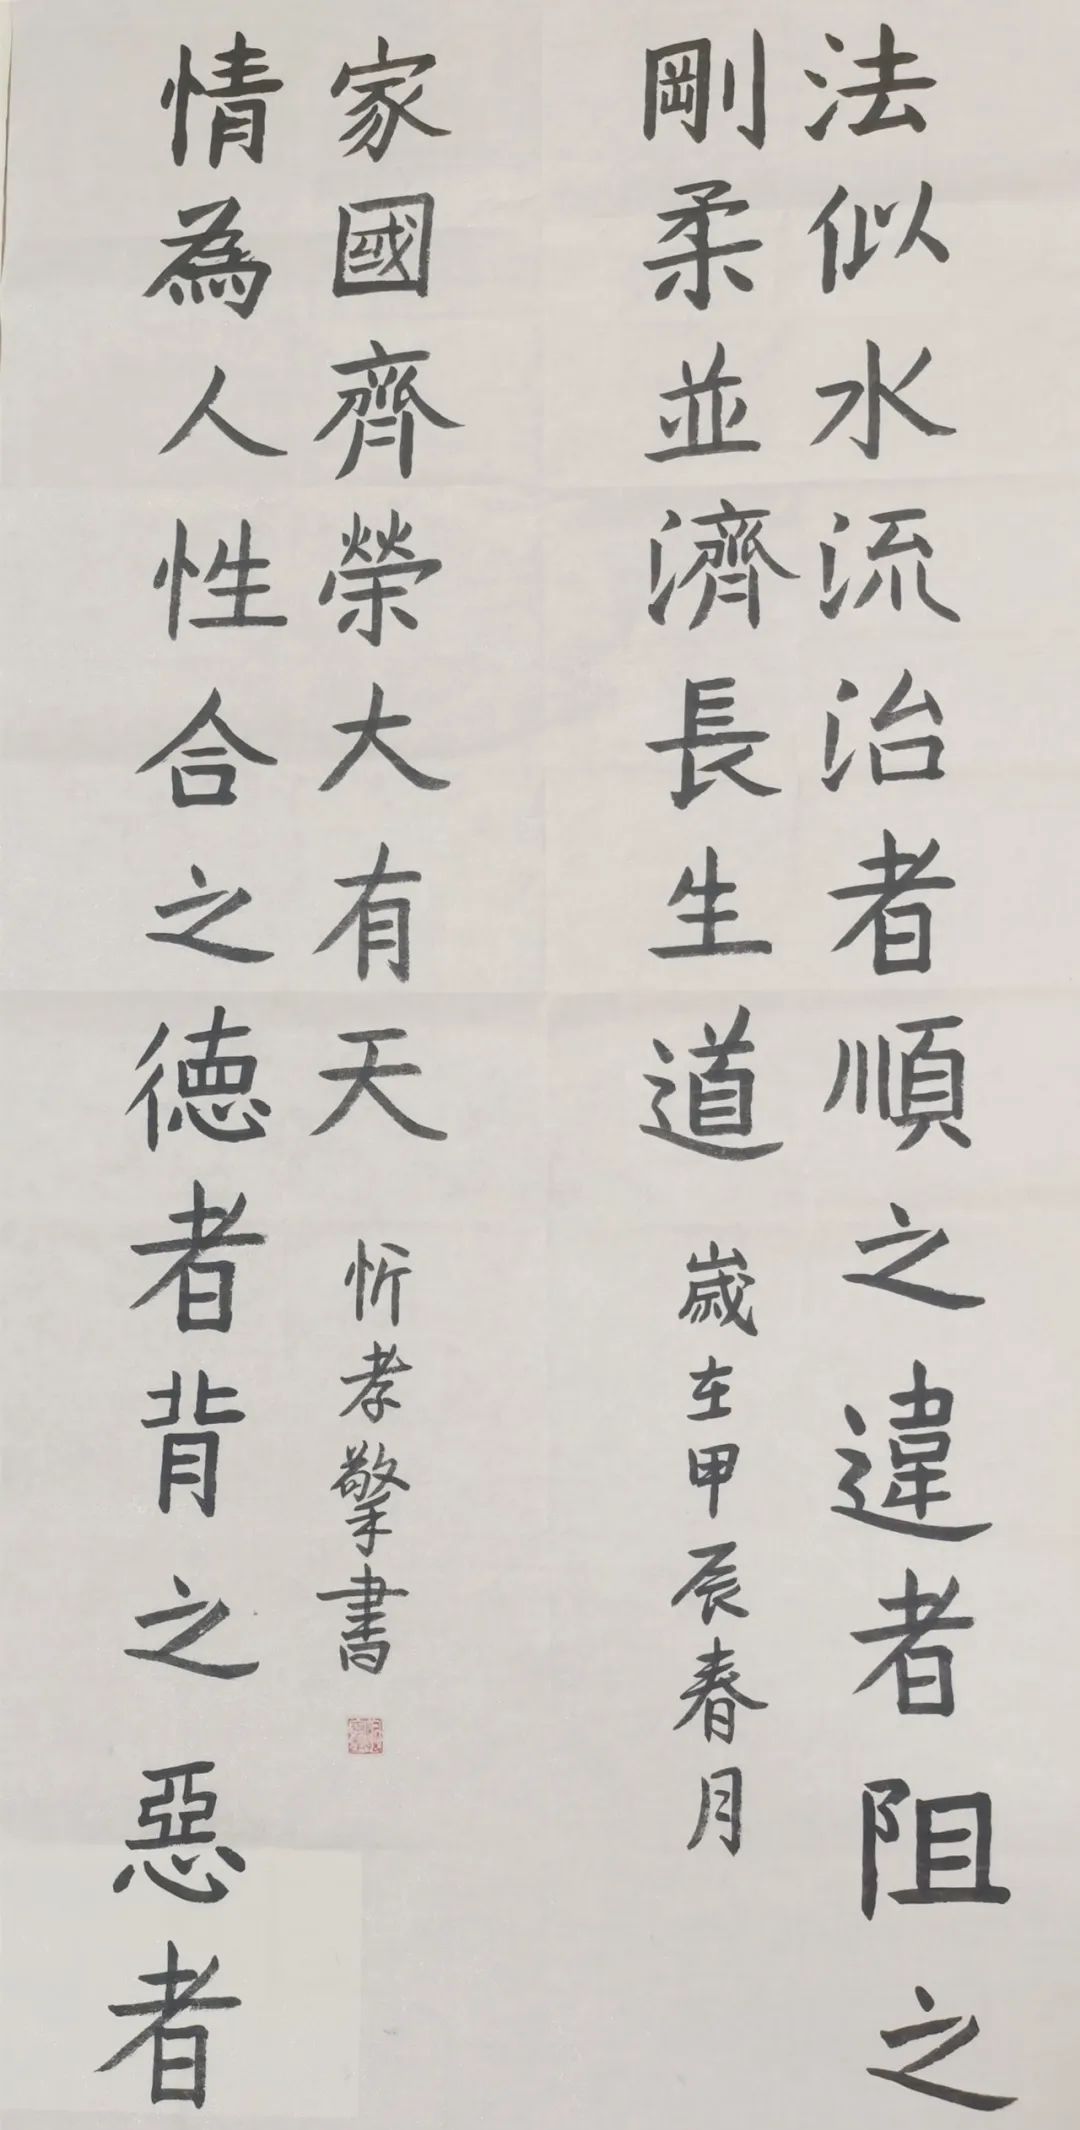 法似水流治者順之違者阻之
剛柔並濟長生道
歲在甲辰春月
情為人性合之德者背之惡者
家國齊榮大有天
忻孝擎書